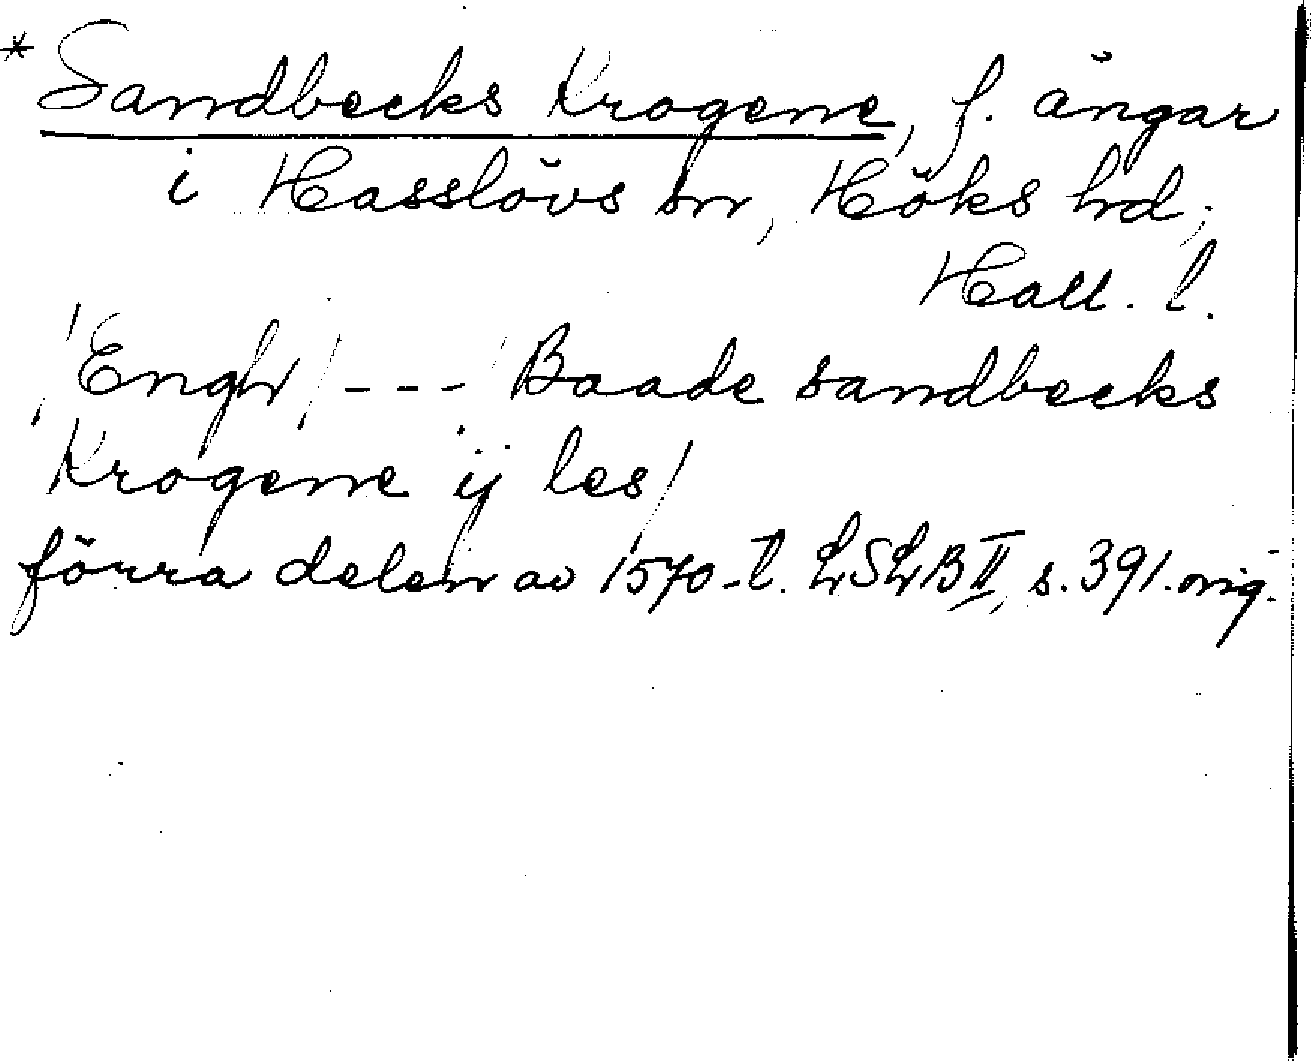 * Sandbecks Krogene, f. ängar
i Hasslövs sn, Höks hd,
Hall. l.
/Engh/ --- Baade sandbecks
Krogene ij les/
förra delen av 1570-t. LSLB II, s. 391. orig.